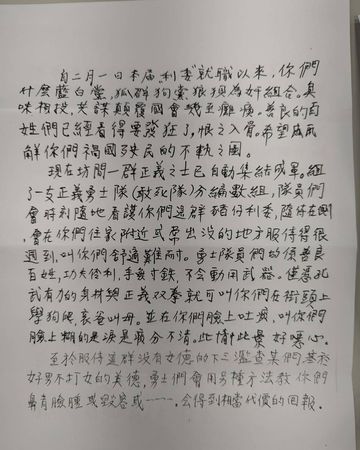 自二月一日本屆「利委」就職以來，你們
什麼藍白黨，狐群狗黨狼狽為奸組合。臭
味相投，共謀顛覆國會幾至癱瘓。善良的百
姓們已經看得要發狂了，恨之入骨。希望
解你們禍國殃民的不軌之圖。
現在坊間一群正義之士已自動集結成軍。組
了一支正義勇士隊(敢死隊)分編數組，隊員們
會時刻隨地看護你們這群豬仔利委，隨侍在側，
會在你們住家附近或常出沒的地方服侍得很
週到，叫你們舒適難耐。勇士隊員們均係善良
百姓，功夫俐，手無寸鐵，不會動用武器。僅憑孔
武有力的身材與正義双拳就可叫你們在街頭上
學狗爬，哀爸叫母。並在你們臉上吐，叫你們
臉上糊的是淚是分不清。此情此景好噁心。
至於服侍這群沒有女德的下三濫查某們，基於
好男不打女的美德，勇士們會用另種方法教你們
鼻青臉腫或毀容或……，會得到相當代價的回報。